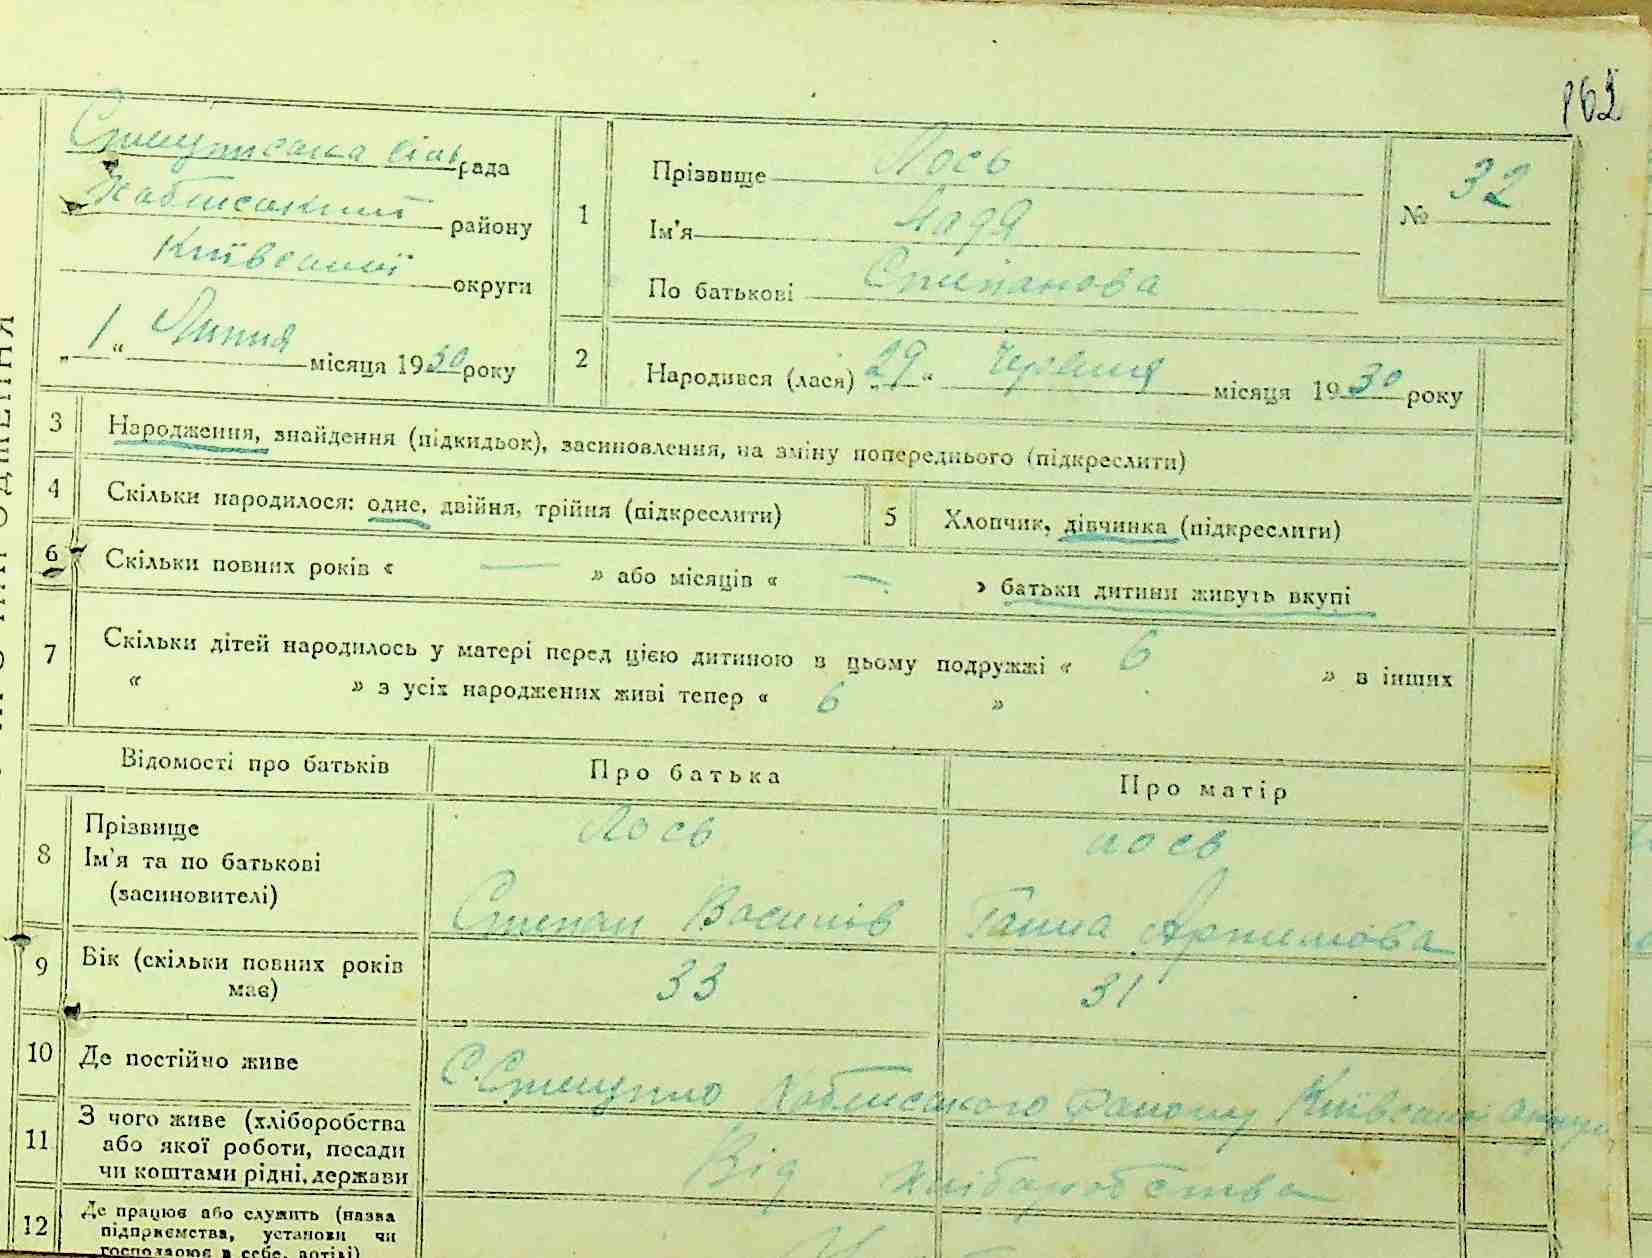 162
рада
району
Київської округи
„1“ Липня місяця 1930 року
1
Прізвище Лось
Ім'я Надя
По батькові Степанова
№ 32
2
Народився (лася) „29“ Червня місяця 1930 року
3
Народження, знайдення (підкидьок), засиновлення, на зміну попереднього (підкреслити)
4
Скільки народилося: одне, двійня, трійня (підкреслити)
5
Хлопчик, дівчинка (підкреслити)
6
Скільки повних років « — » або місяців « — » батьки дитини живуть вкупі
7
Скільки дітей народилось у матері перед цією дитиною в цьому подружжі « 6 » в інших
« » з усіх народжених живі тепер « 6 »
Відомості про батьків
Про батька
Про матір
8
Прізвище
Ім'я та по батькові
(засиновителі)
Лось
Степан Василів
Лось
Ганна Артемова
9
Вік (скільки повних років
має)
33
31
10
Де постійно живе
району Київської округи
11
З чого живе (хліборобства
або якої роботи, посади
чи коштами рідні, держави
Від хліборобства
12
Де працює або служить (назва
підприємства, установи чи
господарює в себе, артілі)